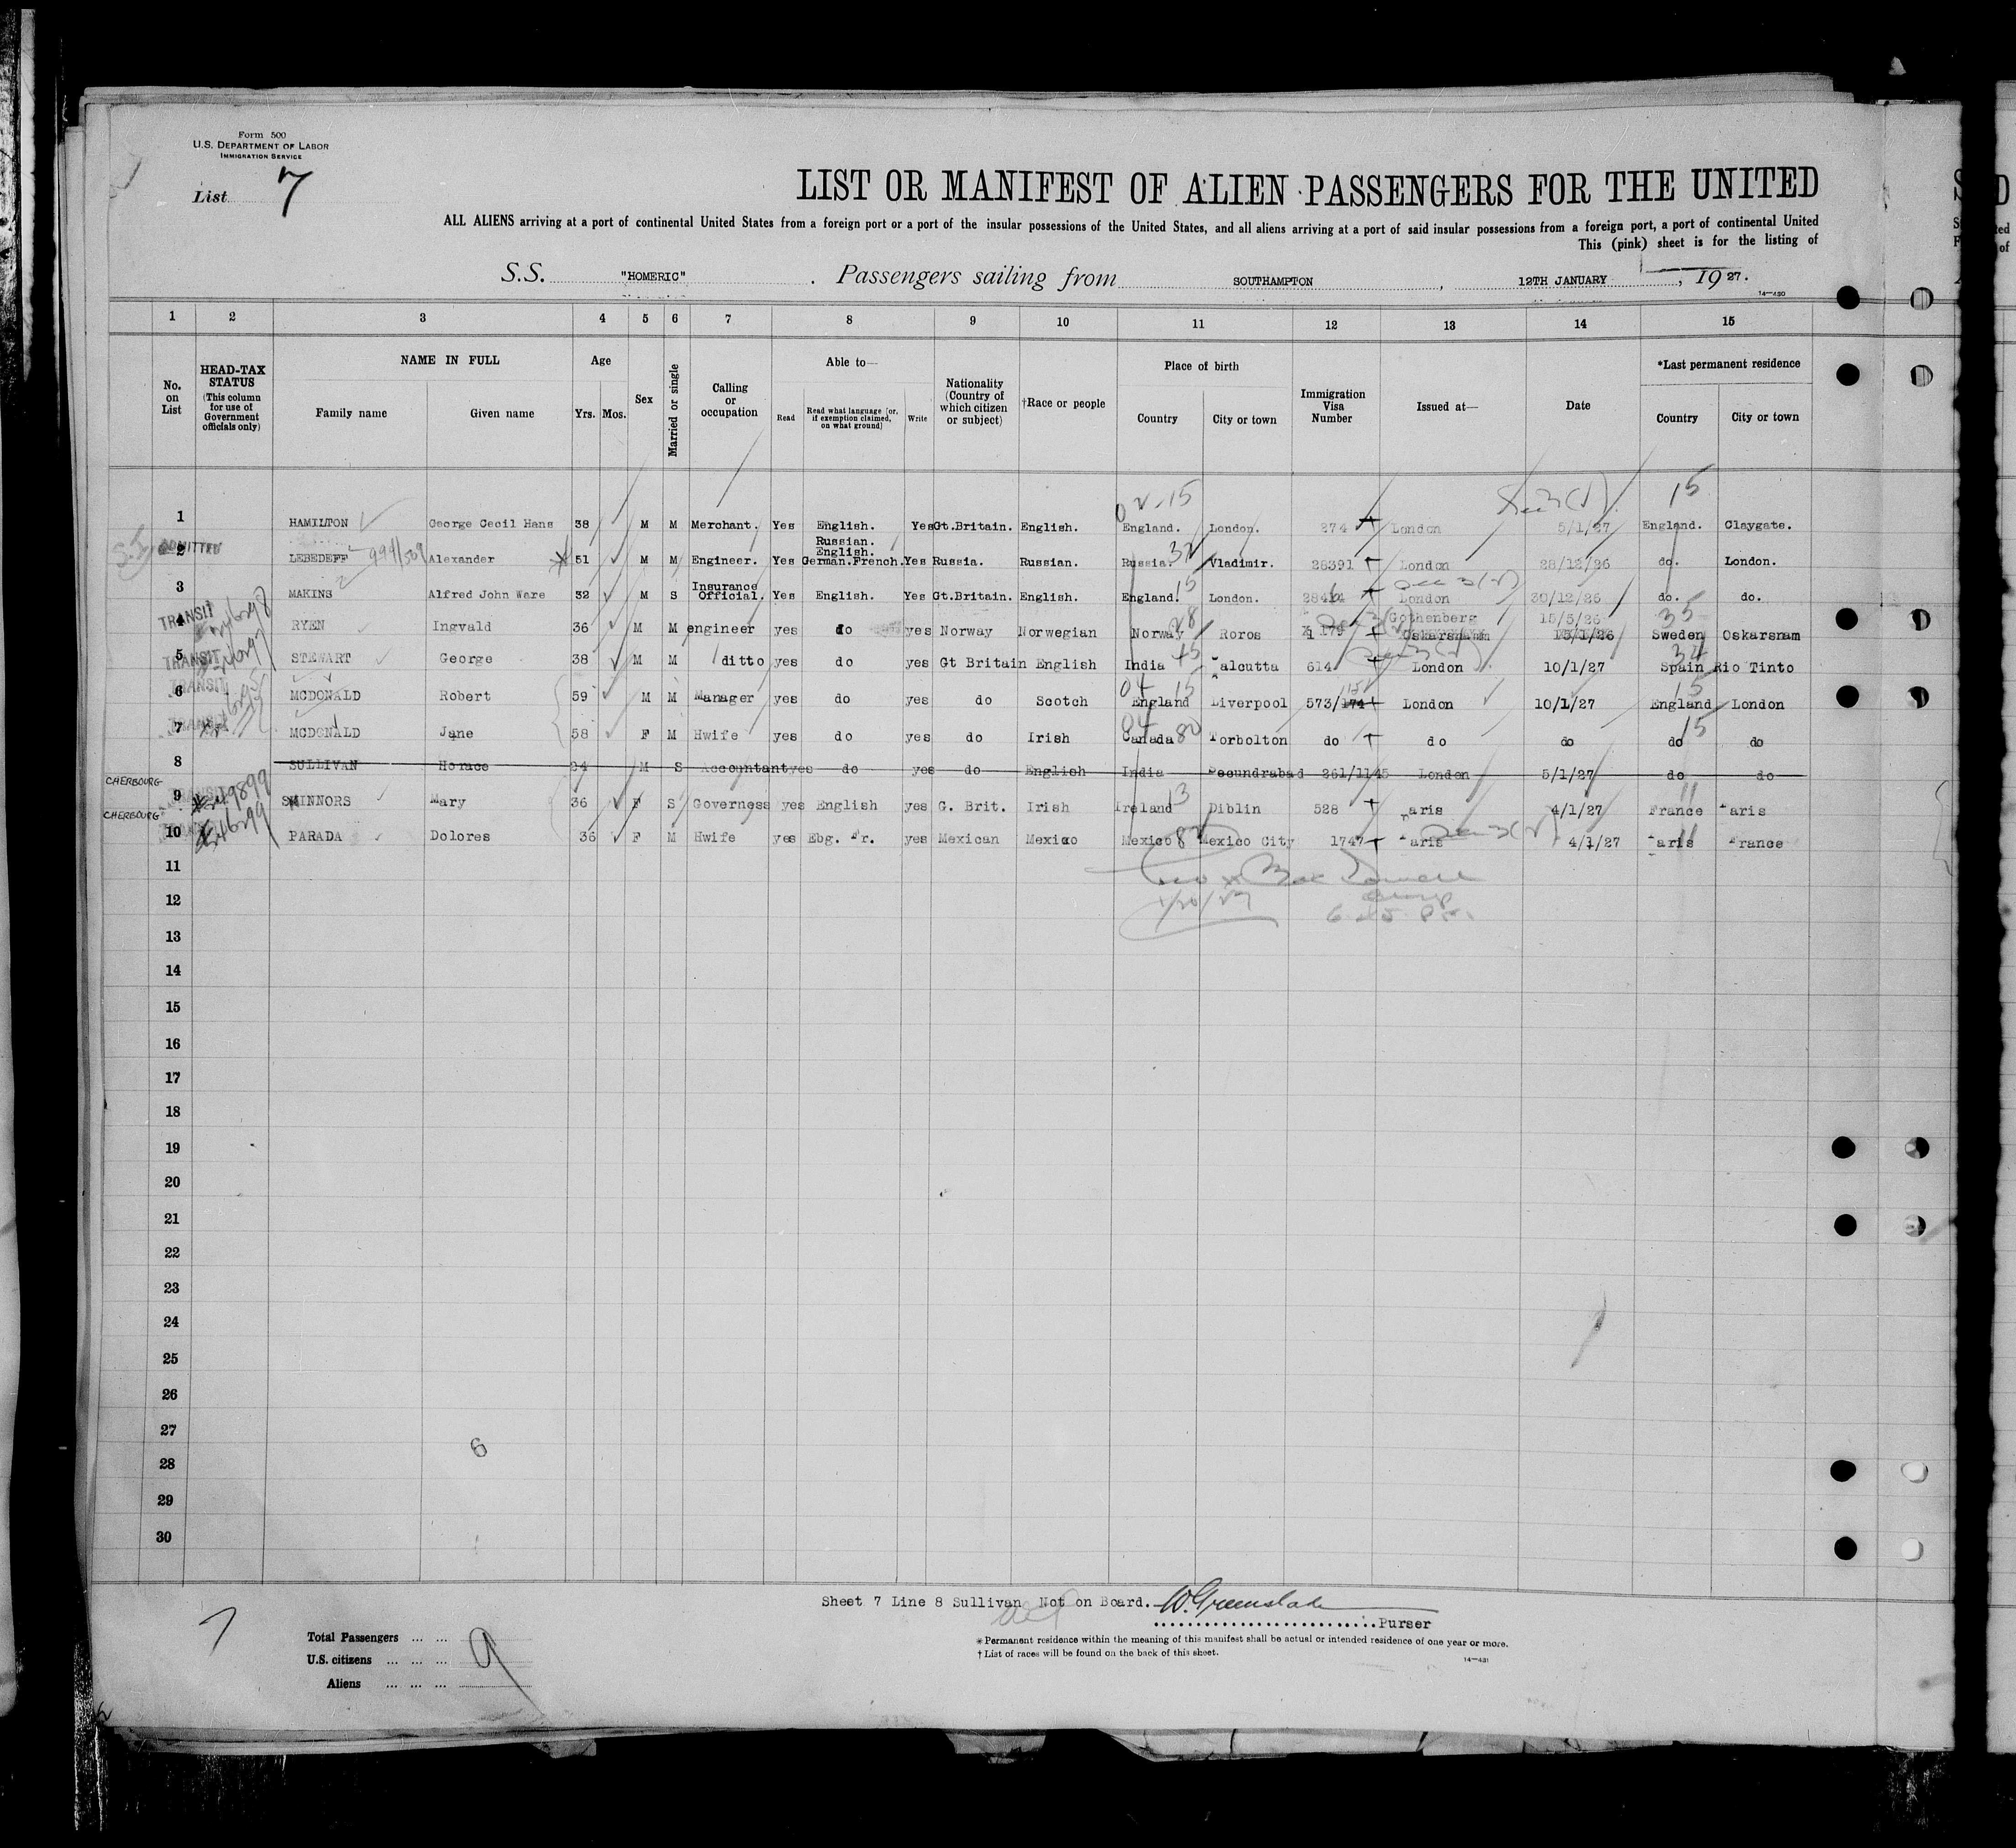 Form 500
U.S. DEPARTMENT OF LABOR
IMMIGRATION SERVICE
List 7
LIST OR MANIFEST OF ALIEN PASSENGERS FOR THE UNITED
ALL ALIENS arriving at a port of continental United States from a foreign port or a port of the insular possessions of the United States, and all aliens arriving at a port of said insular possessions from a foreign port, a port of continental United
This (pink) sheet is for the listing of
S.S. "HOMERIC". Passengers sailing from SOUTHAMPTON, 12TH JANUARY, 1927.
14—430
1 2 3 4 5 6 7 8 9 10 11 12 13 14 15
No. on List
HEAD-TAX STATUS (This column for use of Government officials only)
NAME IN FULL
Family name
Given name
Age
Yrs. Mos.
Sex
Married or single
Calling or occupation
Able to—
Read
Read what language [or, if exemption claimed, on what ground]
Write
Nationality (Country of which citizen or subject)
†Race or people
Place of birth
Country
City or town
Immigration Visa Number
Issued at—
Date
*Last permanent residence
Country
City or town
02-15 15
1 HAMILTON George Cecil Hans 38 M M Merchant. Yes English. Yes Gt.Britain. English. England. London. 274 London 5/1/27 England. Claygate.
S.I. ADMITTED
2 LEBEDEFF 999/509 Alexander 51 M M Engineer. Yes Russian. English. German.French. Yes Russia. Russian. Russia. 32 Vladimir. 28391 London 28/12/26 do. London.
3 MAKINS Alfred John Ware 32 M S Insurance Official. Yes English. Yes Gt.Britain. English. England. 15 London. London 30/12/26 do. do.
TRANSIT
4 RYEN Ingvald 36 M M engineer yes do yes Norway Norwegian Norway 28 Roros 179 Gothenberg Oskarsnamn 15/5/26 Sweden 35 Oskarsnam
TRANSIT
5 STEWART George 38 M M ditto yes do yes Gt Britain English India 45 alcutta 614 London 10/1/27 Spain 34 Rio Tinto
TRANSIT
6 MCDONALD Robert 59 M M Manager yes do yes do Scotch 04 15 England Liverpool 573/174 London 10/1/27 England 15 London
TRANSIT
7 MCDONALD Jane 58 F M Hwife yes do yes do Irish 04 Canada 80 Torbolton do do do do 15 do
8 SULLIVAN Horace 24 M S Accountant yes do yes do English India Secundrabad 261/1145 London 5/1/27 do do
CHERBOURG
9 SKINNORS Mary 36 F S Governess yes English yes G. Brit. Irish Ireland 13 Diblin 528 Paris 4/1/27 France 11 aris
CHERBOURG
10 PARADA Dolores 36 F M Hwife yes Ebg. Fr. yes Mexican Mexico Mexico 82 Mexico City 1747 Paris 4/1/27 aris 11 France
11
12 1/20/27
13
14
15
16
17
18
19
20
21
22
23
24
25
26
27
6
28
29
30
Sheet 7 Line 8 Sullivan Not on Board. W. Greenslade
Purser
7
Total Passengers ... ...
U.S. citizens ... ... ... 9
Aliens ... ... ...
*Permanent residence within the meaning of this manifest shall be actual or intended residence of one year or more.
†List of races will be found on the back of this sheet.
14—431